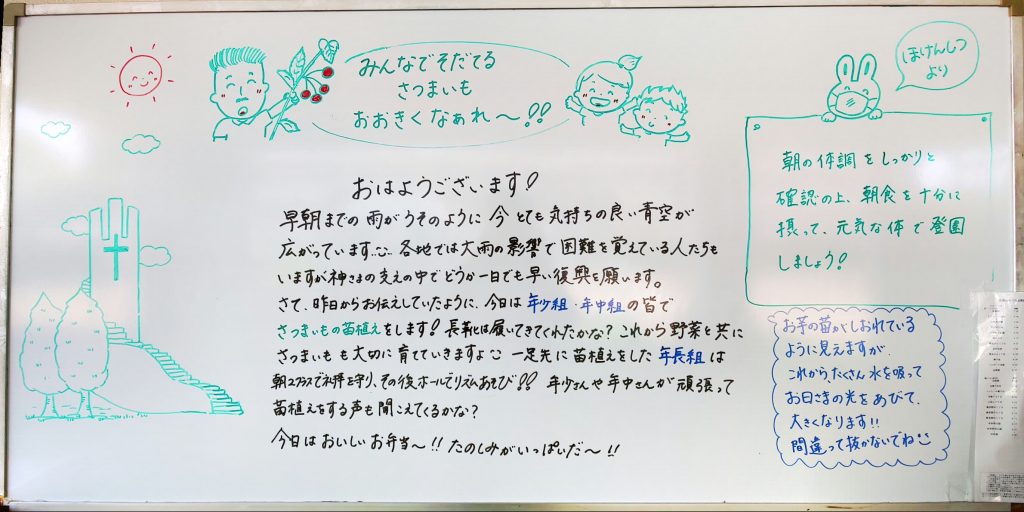 みんなでそだてる
さつまいも
おおきくなぁれ〜!!
ほけんしつ
より
朝の体調をしっかりと
確認の上、朝食を十分に
摂って、元気な体で登園
しましょう!
おはようございます!
早朝までの雨がうそのように今とても気持ちの良い青空が
広がっています。各地では大雨の影響で困難を覚えている人たちも
いますが神さまの支えの中でどうか一日でも早い復興を願います。
さて、昨日からお伝えしていたように、今日は年少組・年中組の皆で
さつまいもの苗植えをします!長靴は履いてきてくれたかな?これから野菜と共に
さつまいもも大切に育てていきますよ 一足先に苗植えをした年長組は
朝2クラスで礼拝を守り、その後ホールでリズムあそび!! 年少さんや年中さんが頑張って
苗植えをする声も聞こえてくるかな?
今日はおいしいお弁当〜!!たのしみがいっぱいだ〜!!
お芋の苗がしおれている
ように見えますが、
これから、たくさん水を吸って
お日さまの光をあびて、
大きくなります!!
間違って抜かないでね